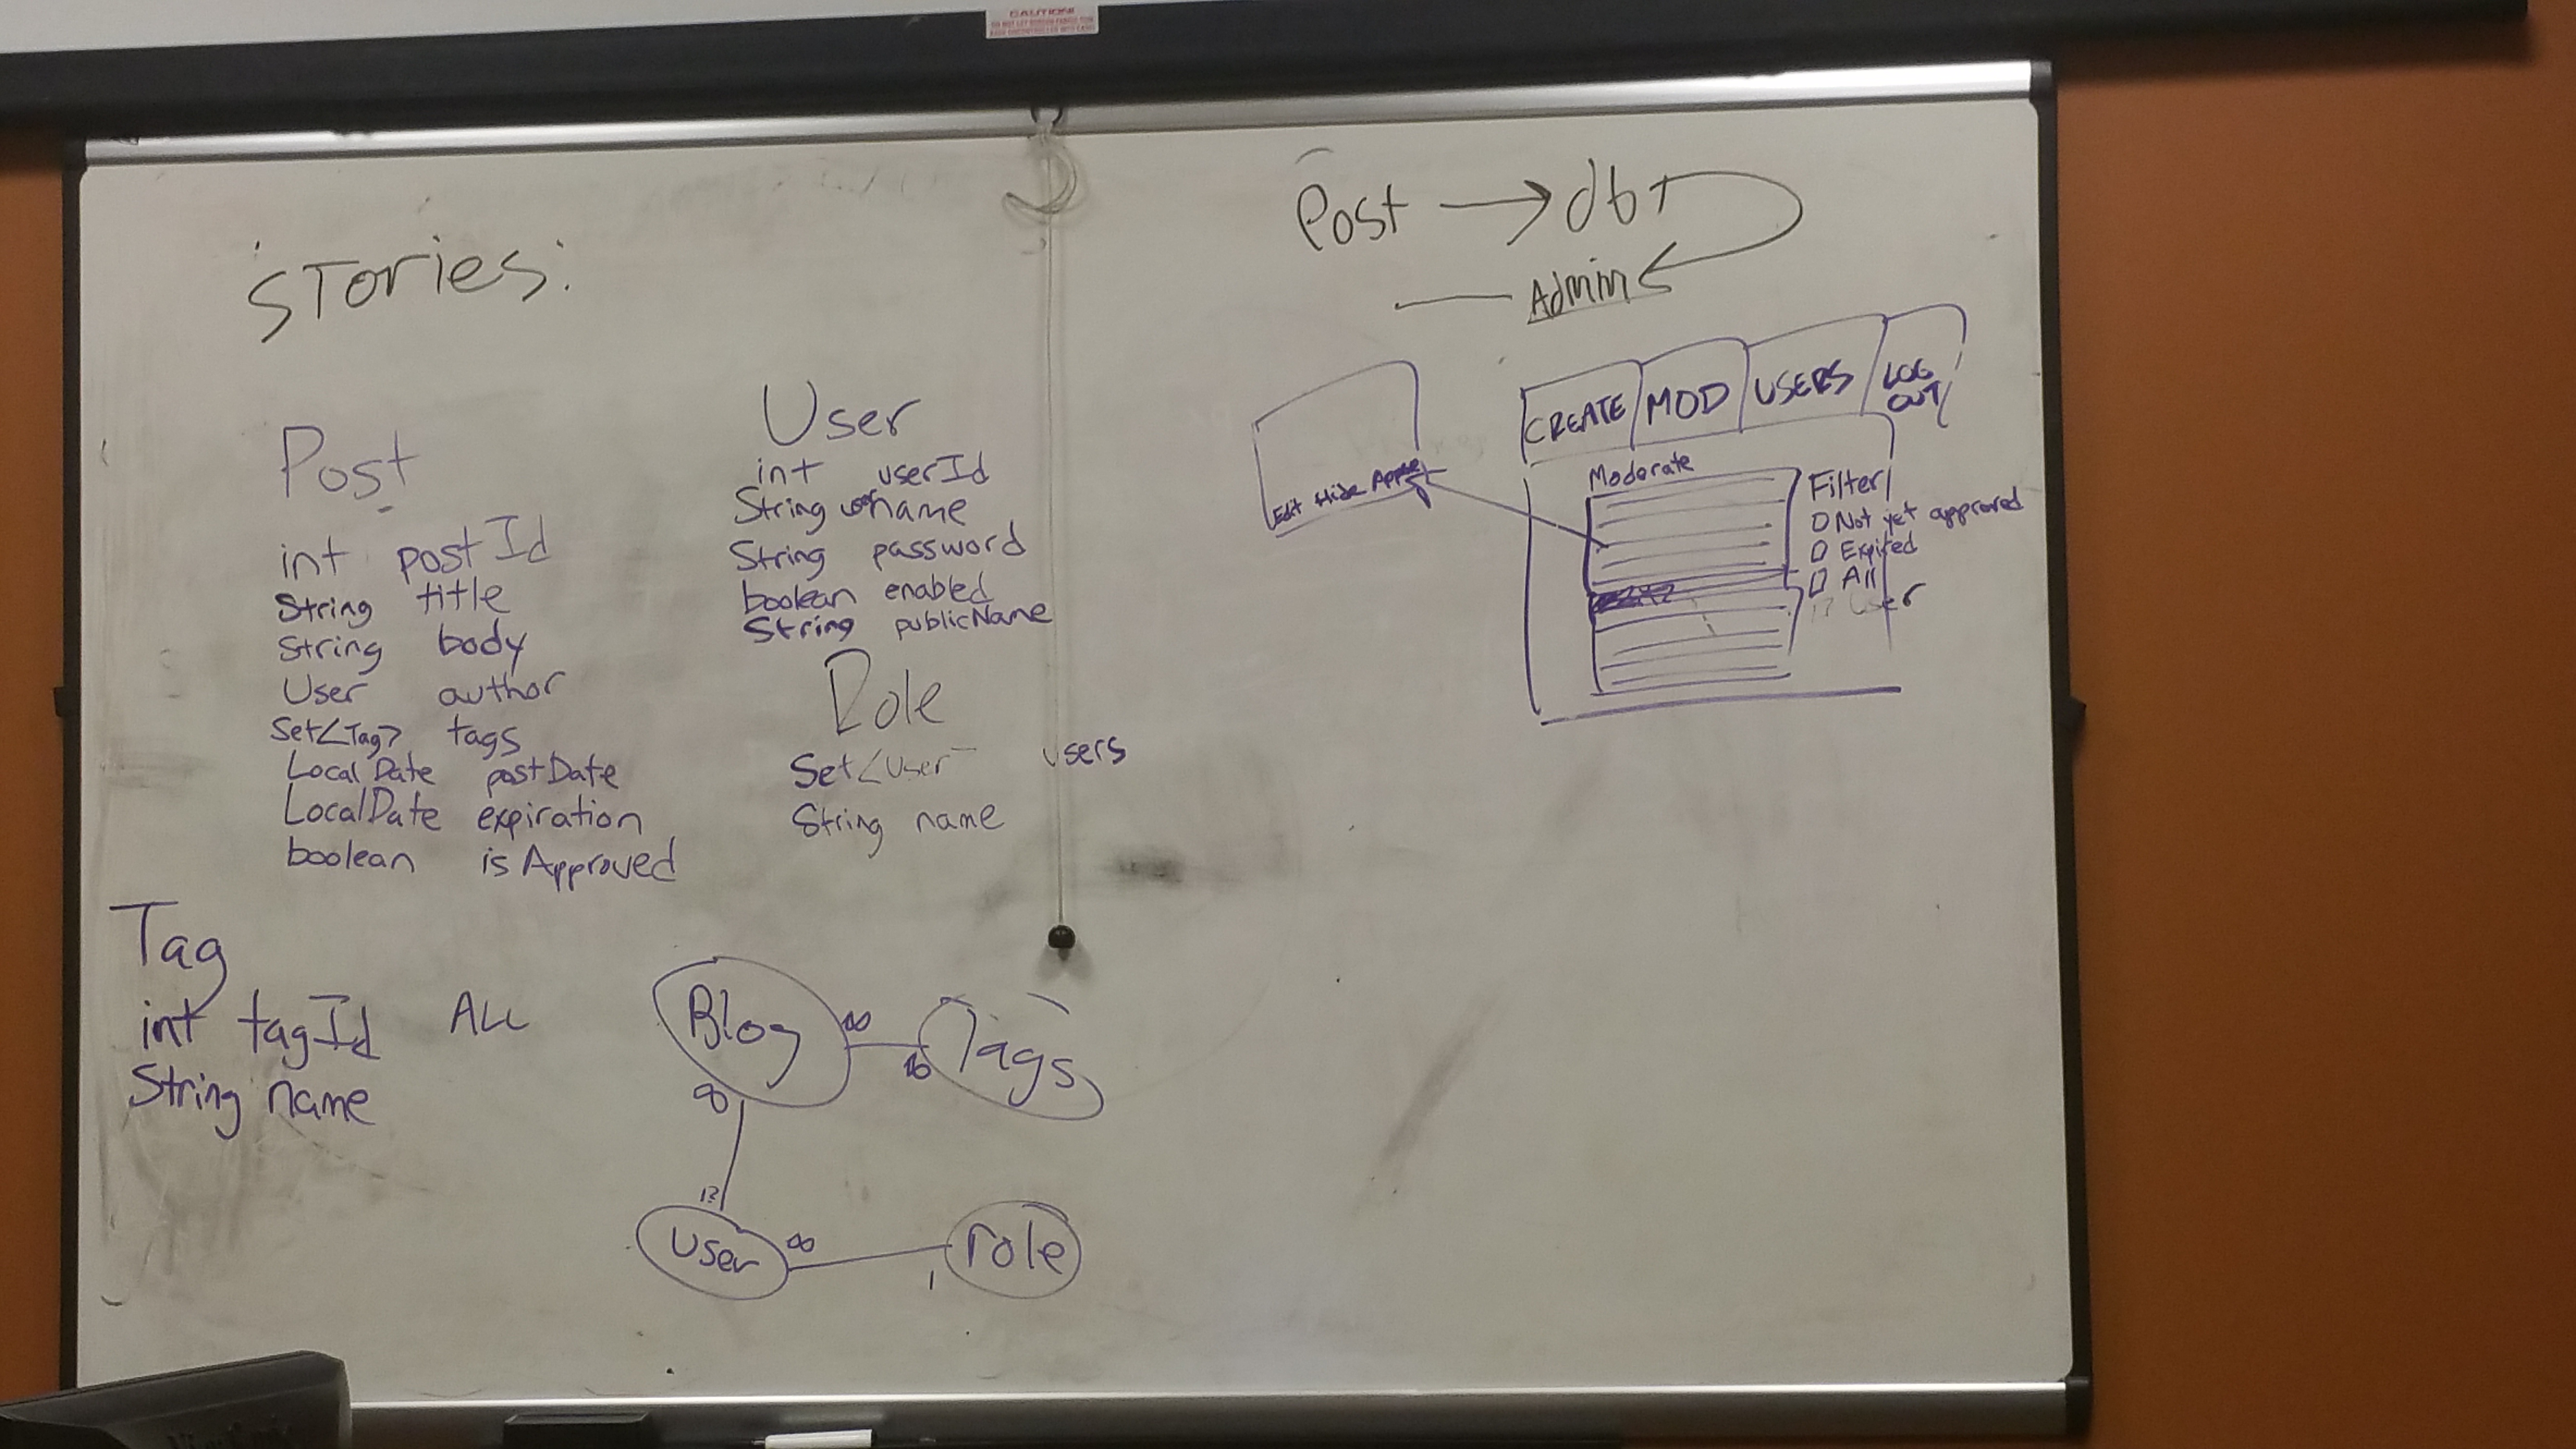 CAUTION!
Stories:
Post
int postId
String title
String body
User author
Set<Tag> tags
LocalDate postDate
LocalDate expiration
boolean isApproved
User
int userId
String username
String password
boolean enabled
String publicName
Role
Set<User users
String name
Tag
int tagId
String name
ALL
Blog ∞
∞ Tags
∞
1?
User ∞
1 role
Post → db
Admin
CREATE MOD USERS LOG OUT
Moderate
Edit Hide
Filter
Not yet approved
Expired
All
User